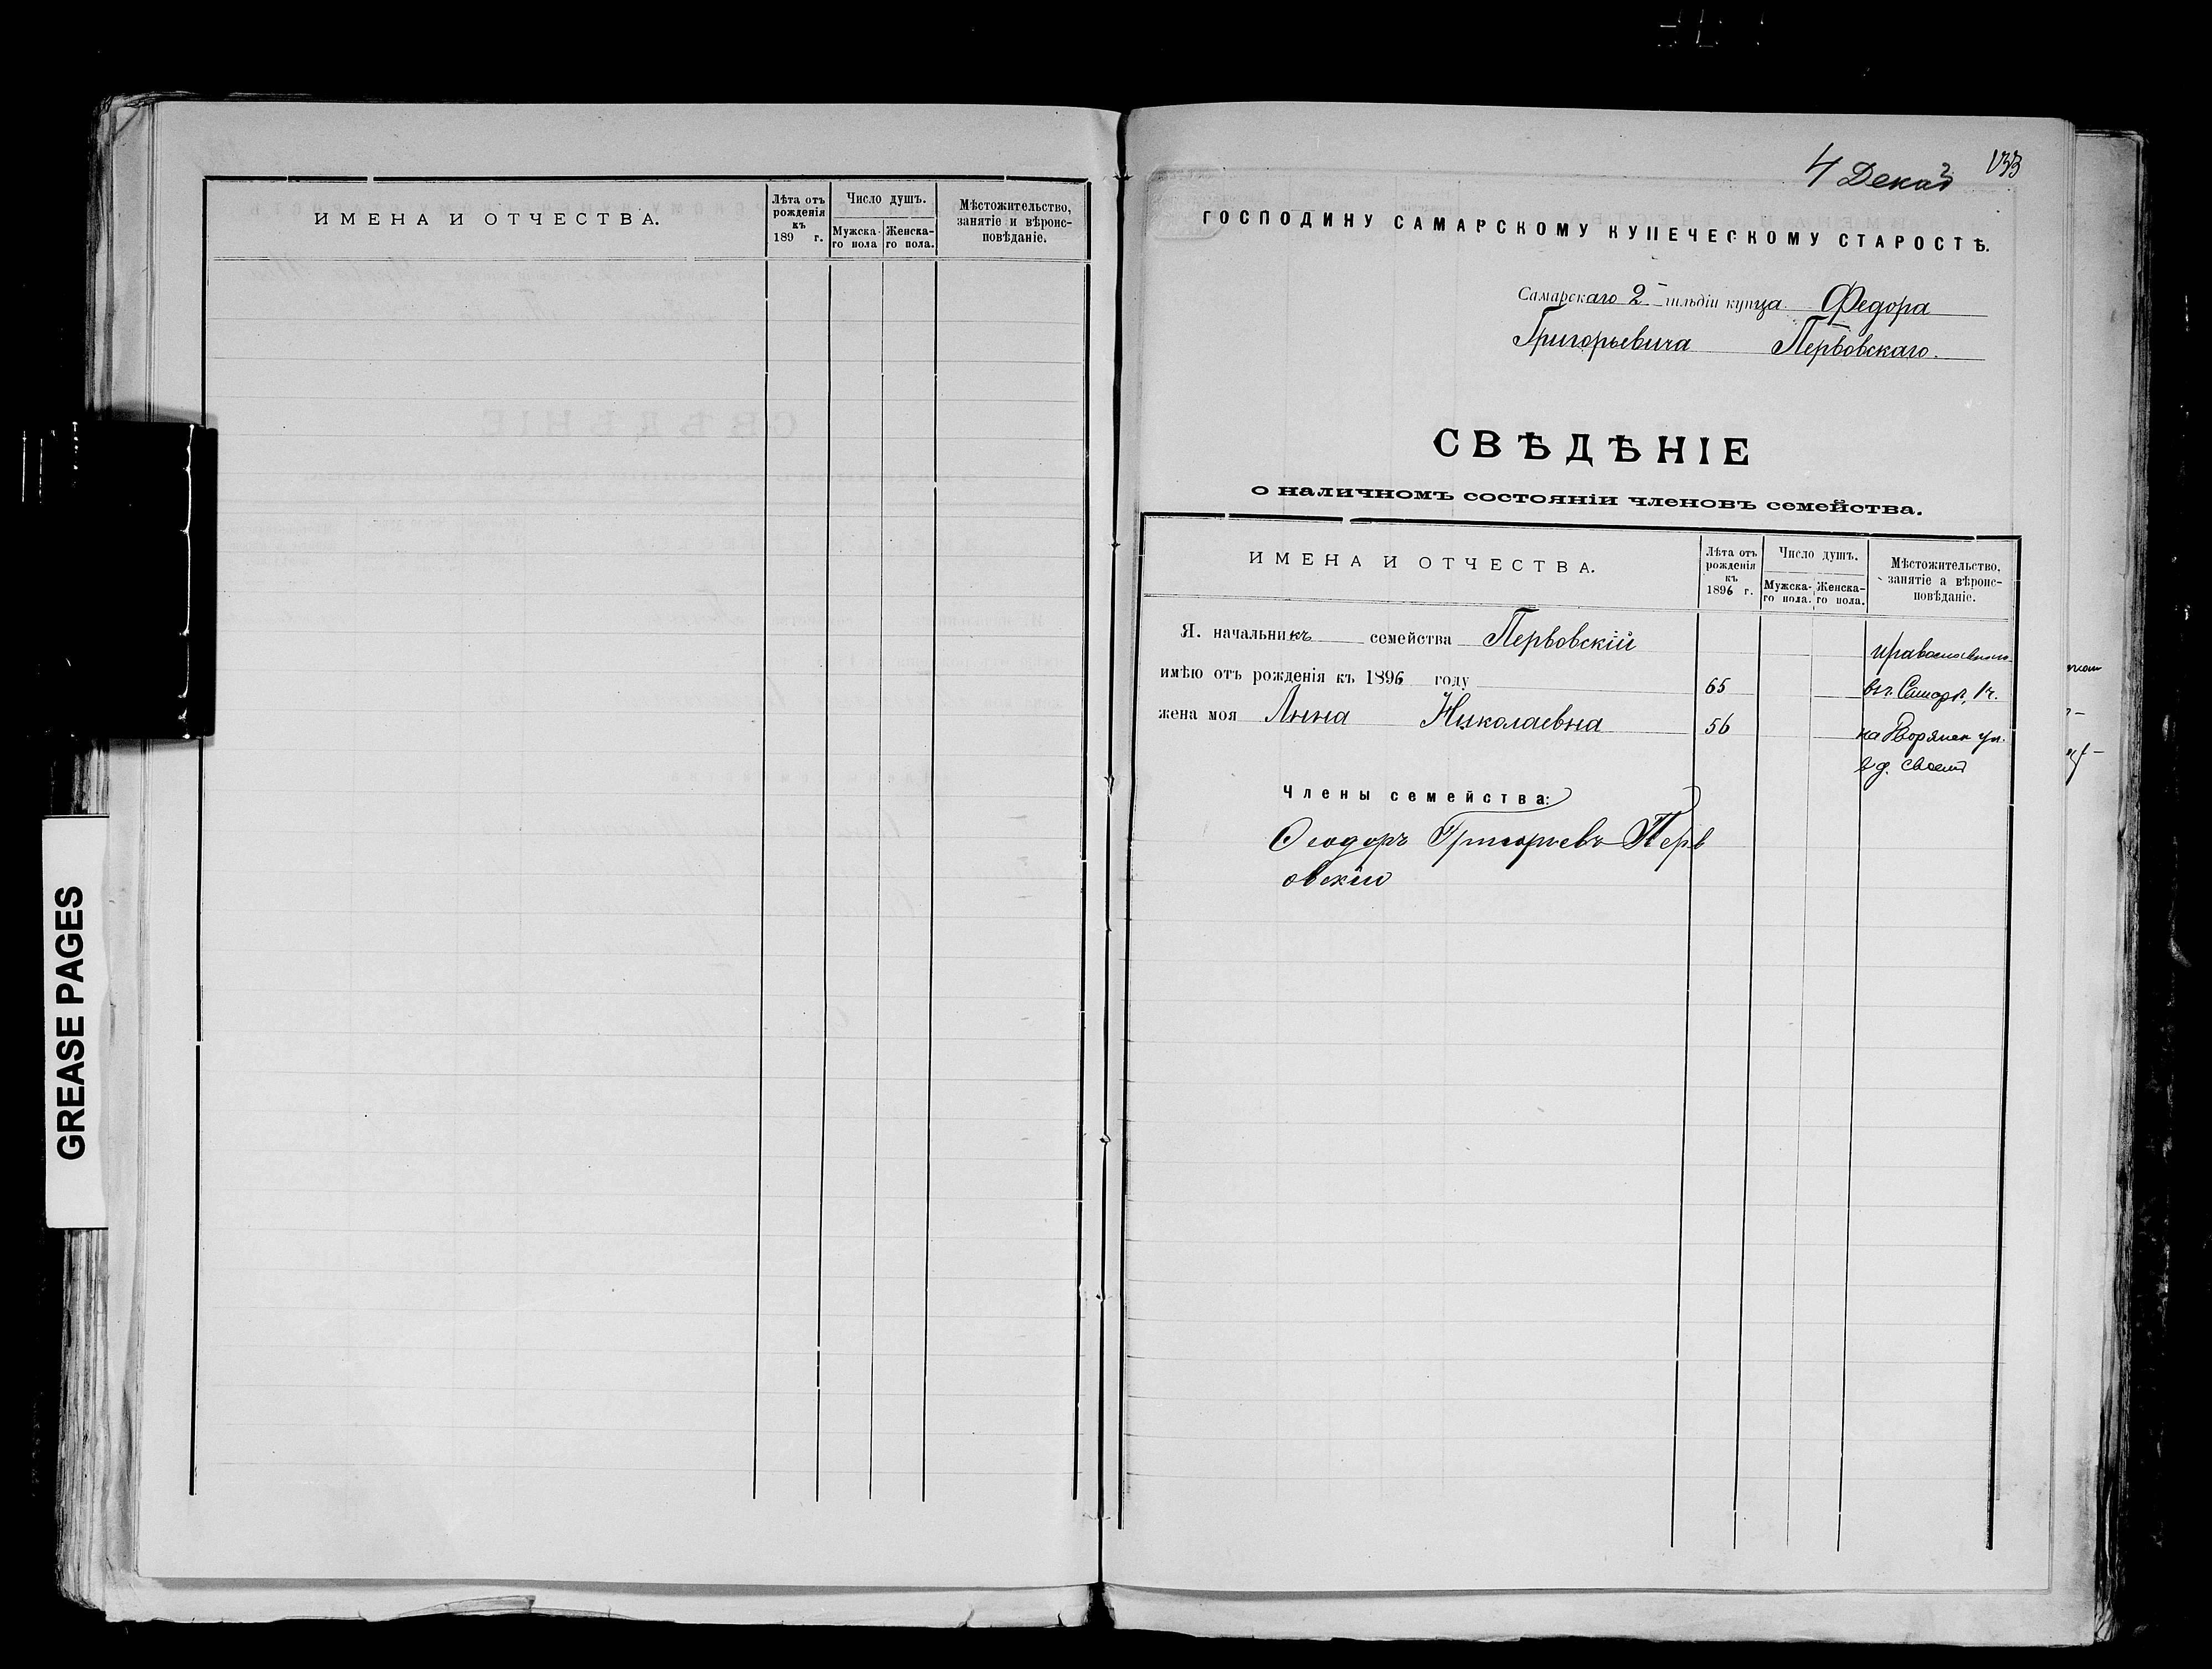 ИМЕНА И ОТЧЕСТВА.
Лѣта отъ рожденія къ 189 г.
Число душъ.
Мужска-го пола
Женска-го пола.
Мѣстожительство, занятіе и вѣроис-повѣданіе.
GREASE PAGES
4 Декаб 133
ГОСПОДИНУ САМАРСКОМУ КУПЕЧЕСКОМУ СТАРОСТѢ.
Самарскаго 2 гильдіи купца Федора
Григорьевича Первовскаго.
СВѢДѢНІЕ
о наличномъ состояніи членовъ семейства.
ИМЕНА И ОТЧЕСТВА.
Лѣта отъ рожденія къ 1896 г.
Число душъ.
Мужска-го пола.
Женска-го пола.
Мѣстожительство, занятіе а вѣроис-повѣданіе.
Я. начальникъ семейства Первовскій
имѣю отъ рожденія къ 1896 году 65
жена моя Анна Николаевна 56
вг. Самарѣ, 1 ч.
на Дворянск ул.
в д. своемъ
Члены семейства:
Ѳеодоръ Григорьевъ Перв
овскій